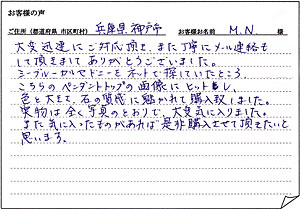 お客様の声
ご住所（都道府県 市区町村） 兵庫県神戸市 お客様お名前 M.N 様
大変迅速にご対応頂き、また丁寧にメール連絡も
して頂きまして ありがとうございました。
シーブルーカルセドニーを ネットで探していたところ
こちらの ペンダントトップの 画像に ヒットし、
色と大きさ、石の質感に 魅かれて 購入致しました。
実物は 全く写真のとおりで、大変気に入りました。
また 気に入ったものがあれば 是非購入させて頂きたいと
思います。